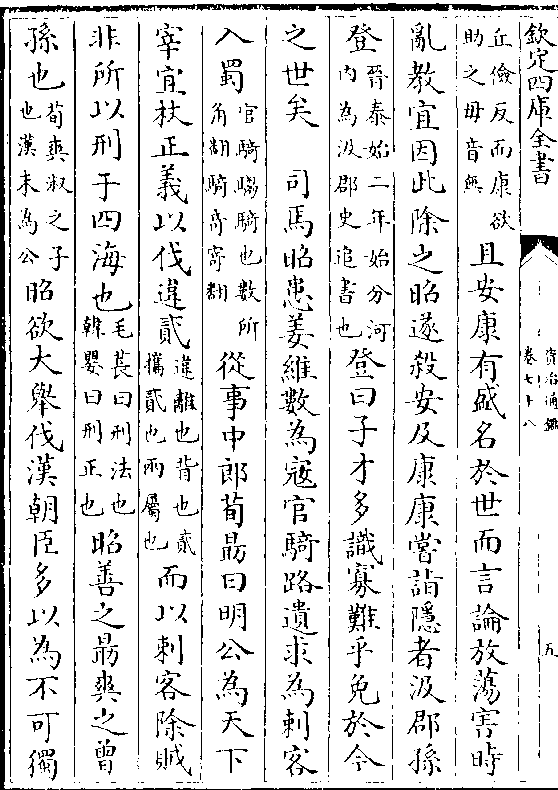 欽定四庫全書
資治通鑑
卷七十八
五
丘儉反而康欲
助之毋音無
且安康有盛名於世而言論放蕩害時
亂教宜因此除之昭遂殺安及康康嘗詣隱者汲郡孫
登
晉泰始二年始分河
内為汲郡史追書也
登曰子才多識寡難乎免於今
之世矣 司馬昭患姜維數為寇官騎路遺求為刺客
入蜀
官騎騶騎也數所
角翻騎奇寄翻
從事中郎荀朂曰明公為天下
宰宜杖正義以伐違貳
違離也背也貳
攜貳也兩屬也
而以刺客除賊
非所以刑于四海也
毛萇曰刑法也
韓嬰曰刑正也
昭善之朂爽之曾
孫也
荀爽淑之子
也漢末為公
昭欲大舉伐漢朝臣多以為不可獨